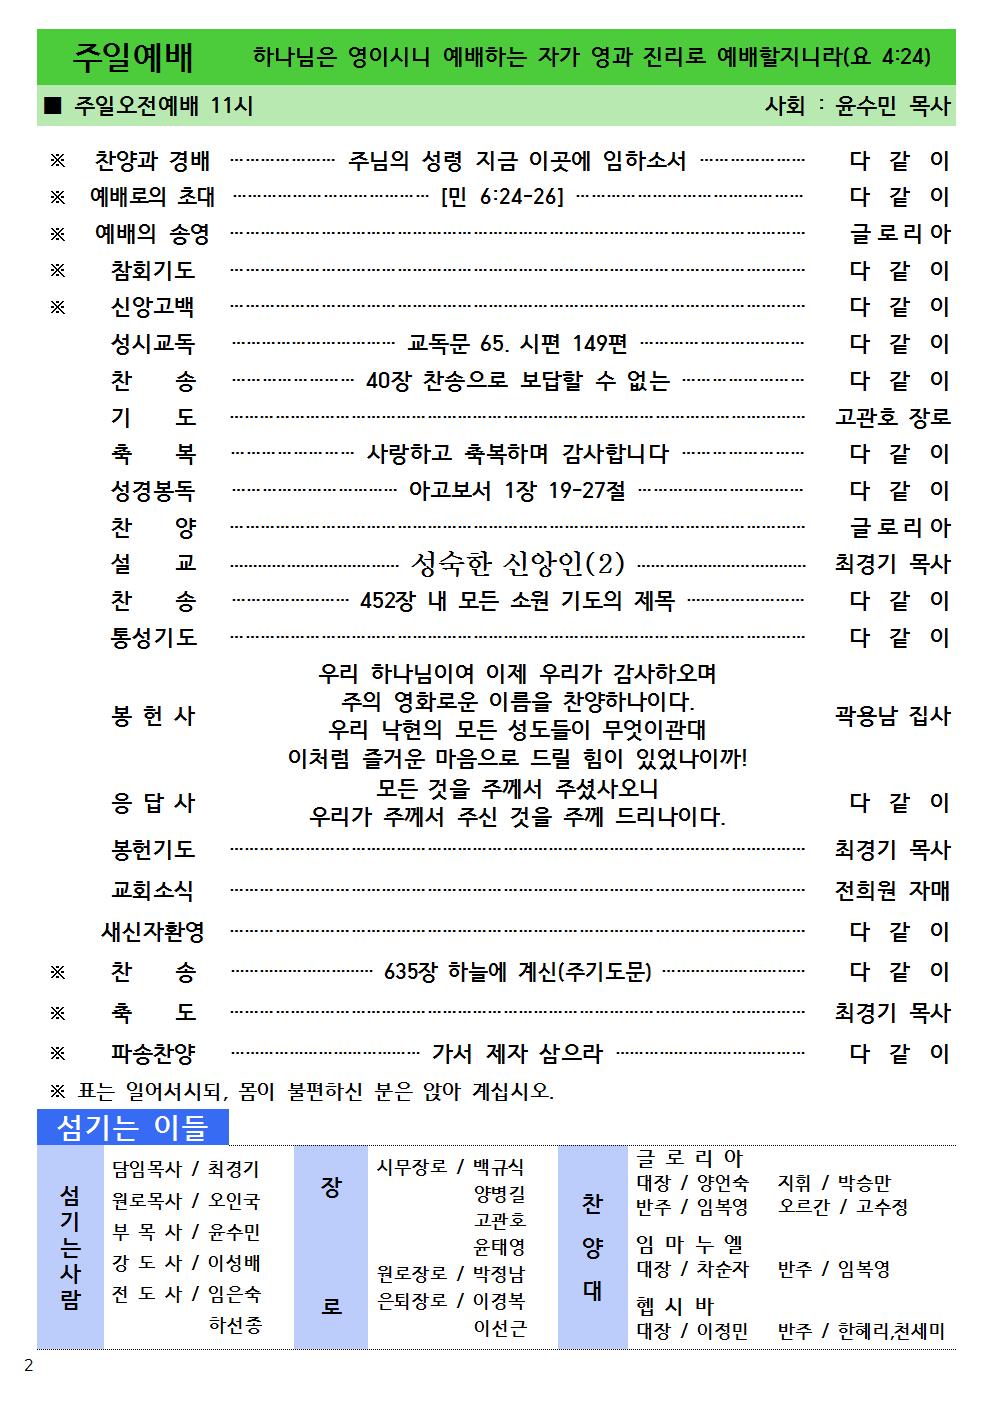 주일예배 하나님은 영이시니 예배하는 자가 영과 진리로 예배할지니라(요 4:24)
■ 주일오전예배 11시 사회 : 윤수민 목사
※ 찬양과 경배 ………………… 주님의 성령 지금 이곳에 임하소서 ………………… 다 같 이
※ 예배로의 초대 ………………………………… [민 6:24-26] ……………………………………… 다 같 이
※ 예배의 송영 …………………………………………………………………………………………………… 글로리아
※ 참회기도 …………………………………………………………………………………………………… 다 같 이
※ 신앙고백 …………………………………………………………………………………………………… 다 같 이
성시교독 …………………………… 교독문 65. 시편 149편 …………………………… 다 같 이
찬 송 …………………… 40장 찬송으로 보답할 수 없는 …………………… 다 같 이
기 도 …………………………………………………………………………………………………… 고관호 장로
축 복 …………………… 사랑하고 축복하며 감사합니다 …………………… 다 같 이
성경봉독 …………………………… 야고보서 1장 19-27절 …………………………… 다 같 이
찬 양 …………………………………………………………………………………………………… 글로리아
설 교 …………………………… 성숙한 신앙인(2) …………………………… 최경기 목사
찬 송 …………………… 452장 내 모든 소원 기도의 제목 …………………… 다 같 이
통성기도 …………………………………………………………………………………………………… 다 같 이
우리 하나님이여 이제 우리가 감사하오며
주의 영화로운 이름을 찬양하나이다.
봉 헌 사 곽용남 집사
우리 낙현의 모든 성도들이 무엇이관대
이처럼 즐거운 마음으로 드릴 힘이 있었나이까!
모든 것을 주께서 주셨사오니
응 답 사 다 같 이
우리가 주께서 주신 것을 주께 드리나이다.
봉헌기도 …………………………………………………………………………………………………… 최경기 목사
교회소식 …………………………………………………………………………………………………… 전희원 자매
새신자환영 …………………………………………………………………………………………………… 다 같 이
※ 찬 송 ………………………… 635장 하늘에 계신(주기도문) ………………………… 다 같 이
※ 축 도 …………………………………………………………………………………………………… 최경기 목사
※ 파송찬양 ………………………………… 가서 제자 삼으라 ………………………………… 다 같 이
※ 표는 일어서시되, 몸이 불편하신 분은 앉아 계십시오.
섬기는 이들
섬기는사람
담임목사 / 최경기
원로목사 / 오인국
부 목 사 / 윤수민
강 도 사 / 이성배
전 도 사 / 임은숙
하선종
장 로
시무장로 / 백규식
양병길
고관호
윤태영
원로장로 / 박정남
은퇴장로 / 이경복
이선근
찬양대
글 로 리 아
대장 / 양언숙 지휘 / 박승만
반주 / 임복영 오르간 / 고수정
임 마 누 엘
대장 / 차순자 반주 / 임복영
헵 시 바
대장 / 이정민 반주 / 한혜리,천세미
2